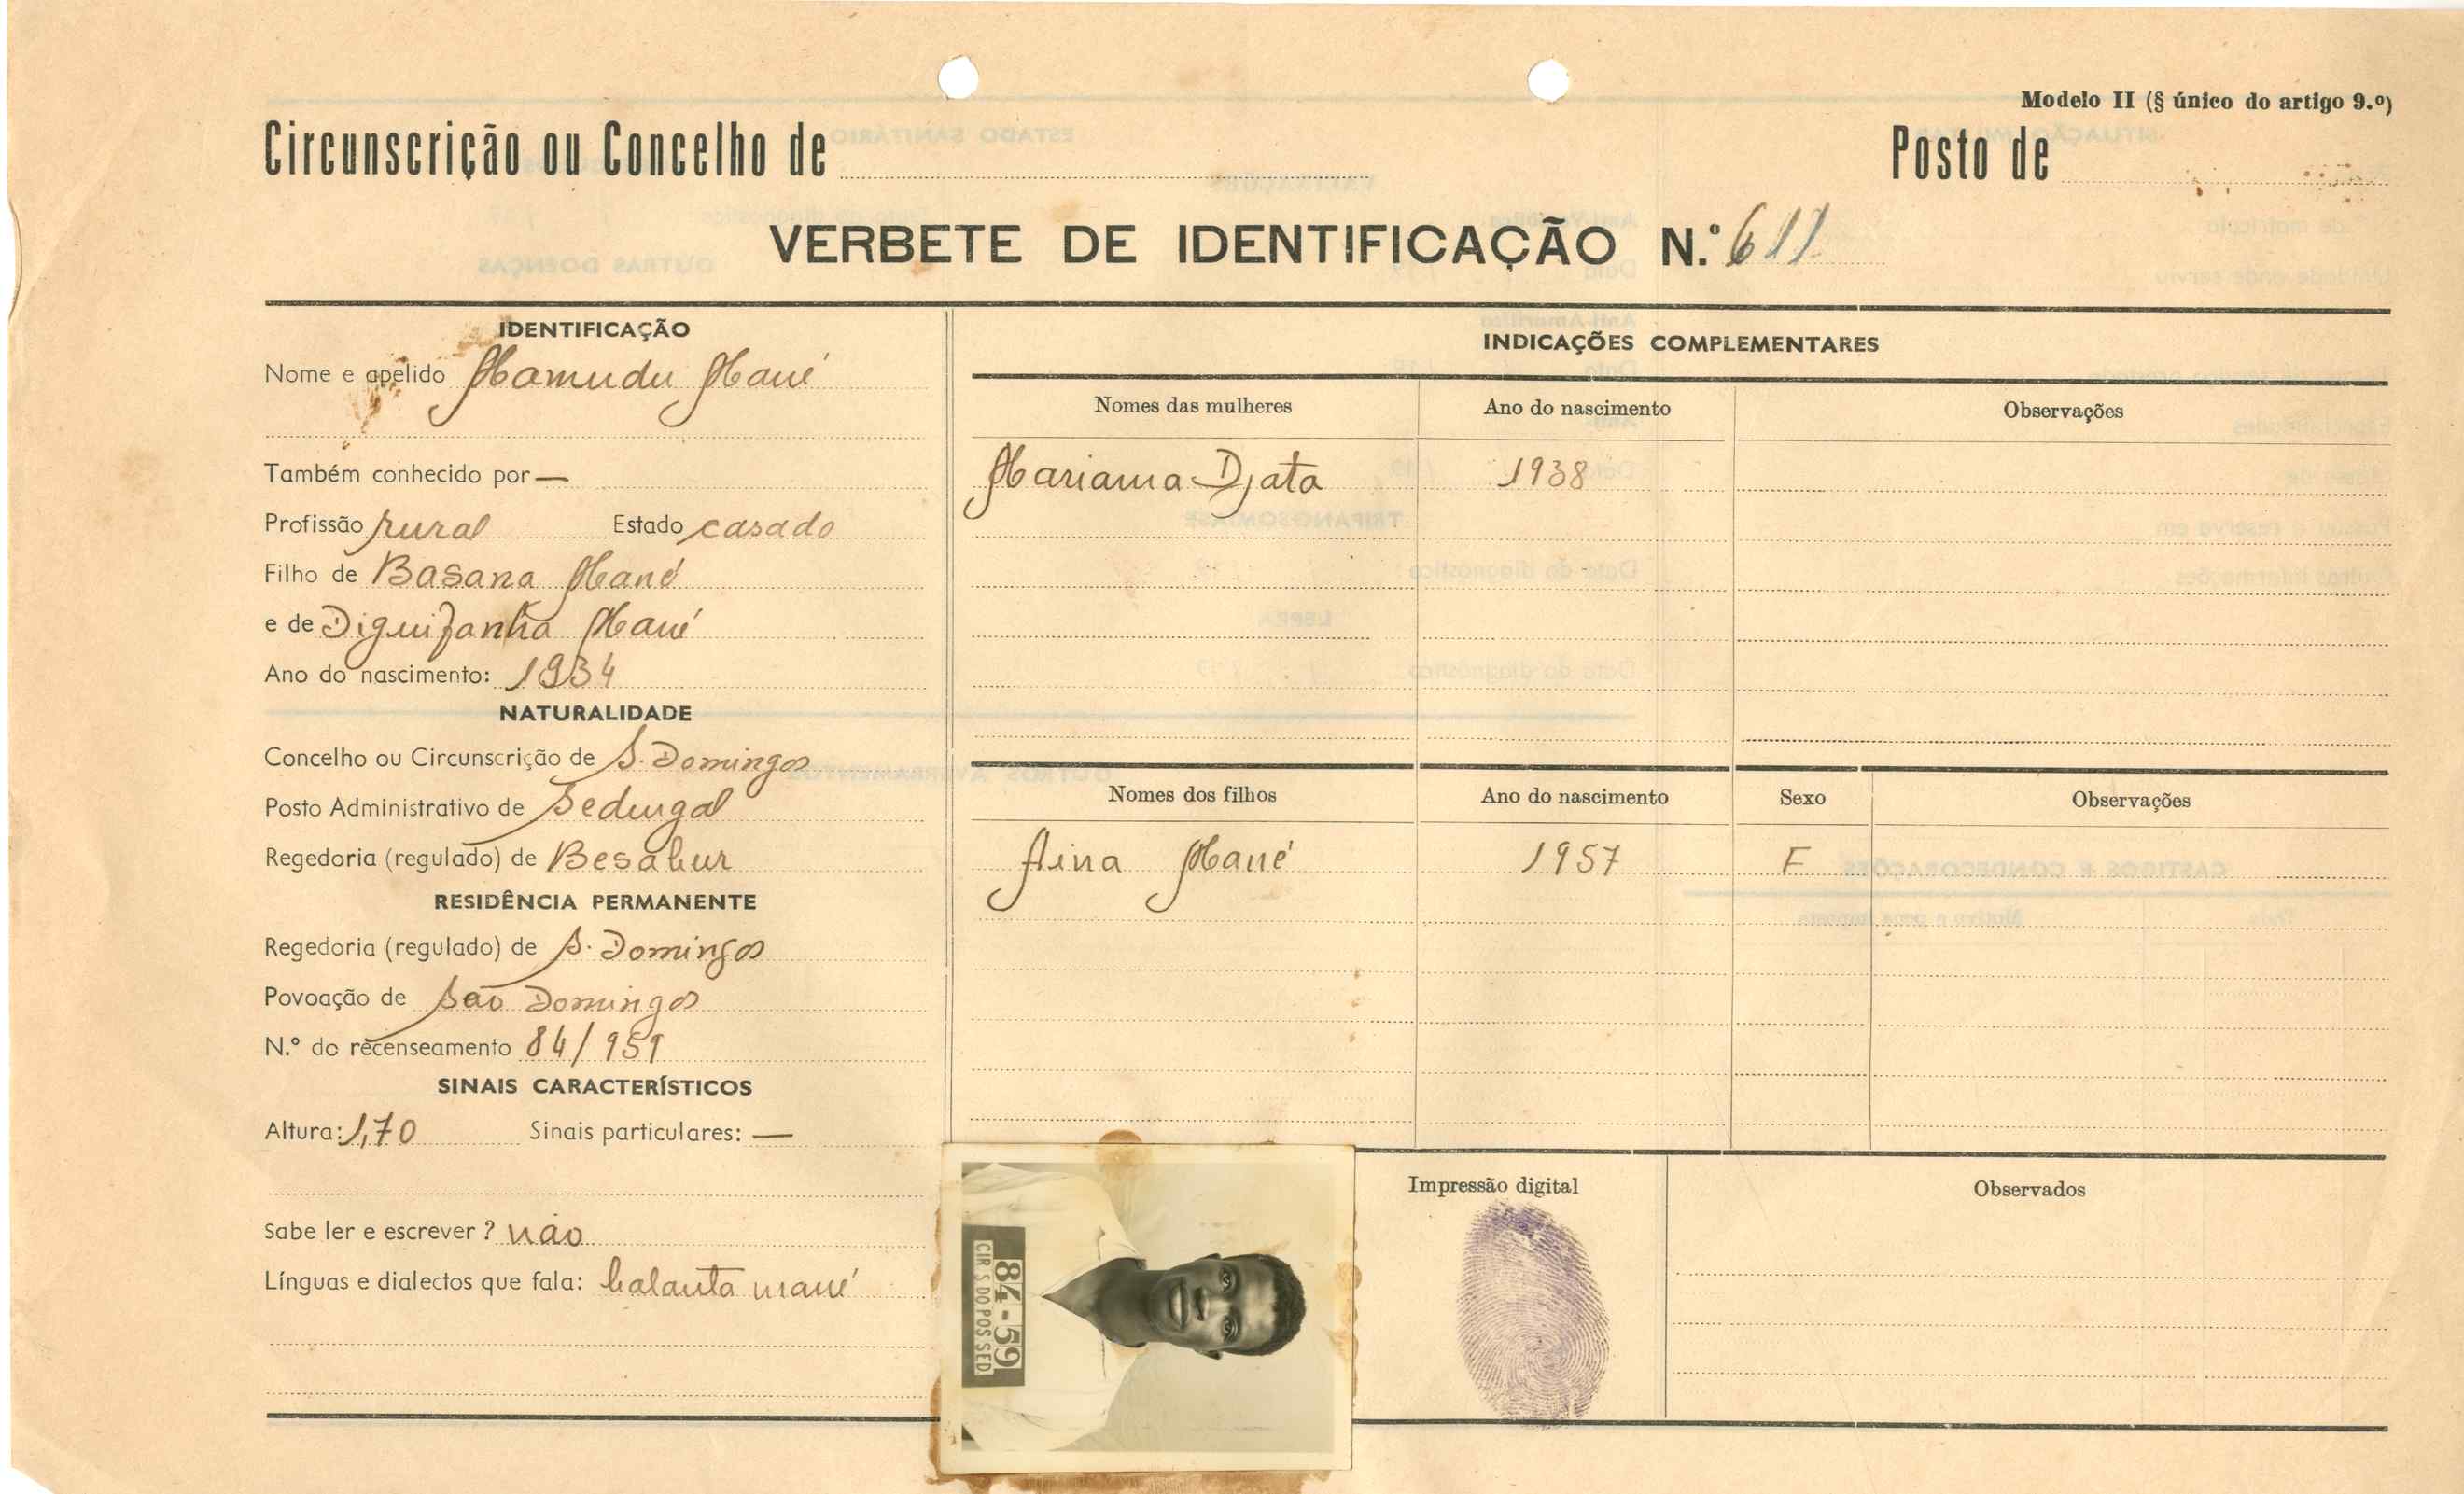 Modelo II (§ único do artigo 9.º)
Circunscrição ou Concelho de
Posto de
VERBETE DE IDENTIFICAÇÃO N.º 611
IDENTIFICAÇÃO
Nome e apelido Mamudu Mané
Também conhecido por —
Profissão rural Estado casado
Filho de Basana Mané
e de Diguifanha Mané
Ano do nascimento: 1934
NATURALIDADE
Concelho ou Circunscrição de S. Domingos
Posto Administrativo de Sedengal
Regedoria (regulado) de Besabur
RESIDÊNCIA PERMANENTE
Regedoria (regulado) de S. Domingos
Povoação de São Domingos
N.º do recenseamento 84/959
SINAIS CARACTERÍSTICOS
Altura: 1,70 Sinais particulares: —
Sabe ler e escrever? não
Línguas e dialectos que fala: balanta mané
INDICAÇÕES COMPLEMENTARES
Nomes das mulheres Ano do nascimento Observações
Mariama Djata 1938
Nomes dos filhos Ano do nascimento Sexo Observações
Aina Mané 1957 F
84-59
CIR S DO POS SED
Impressão digital
Observados